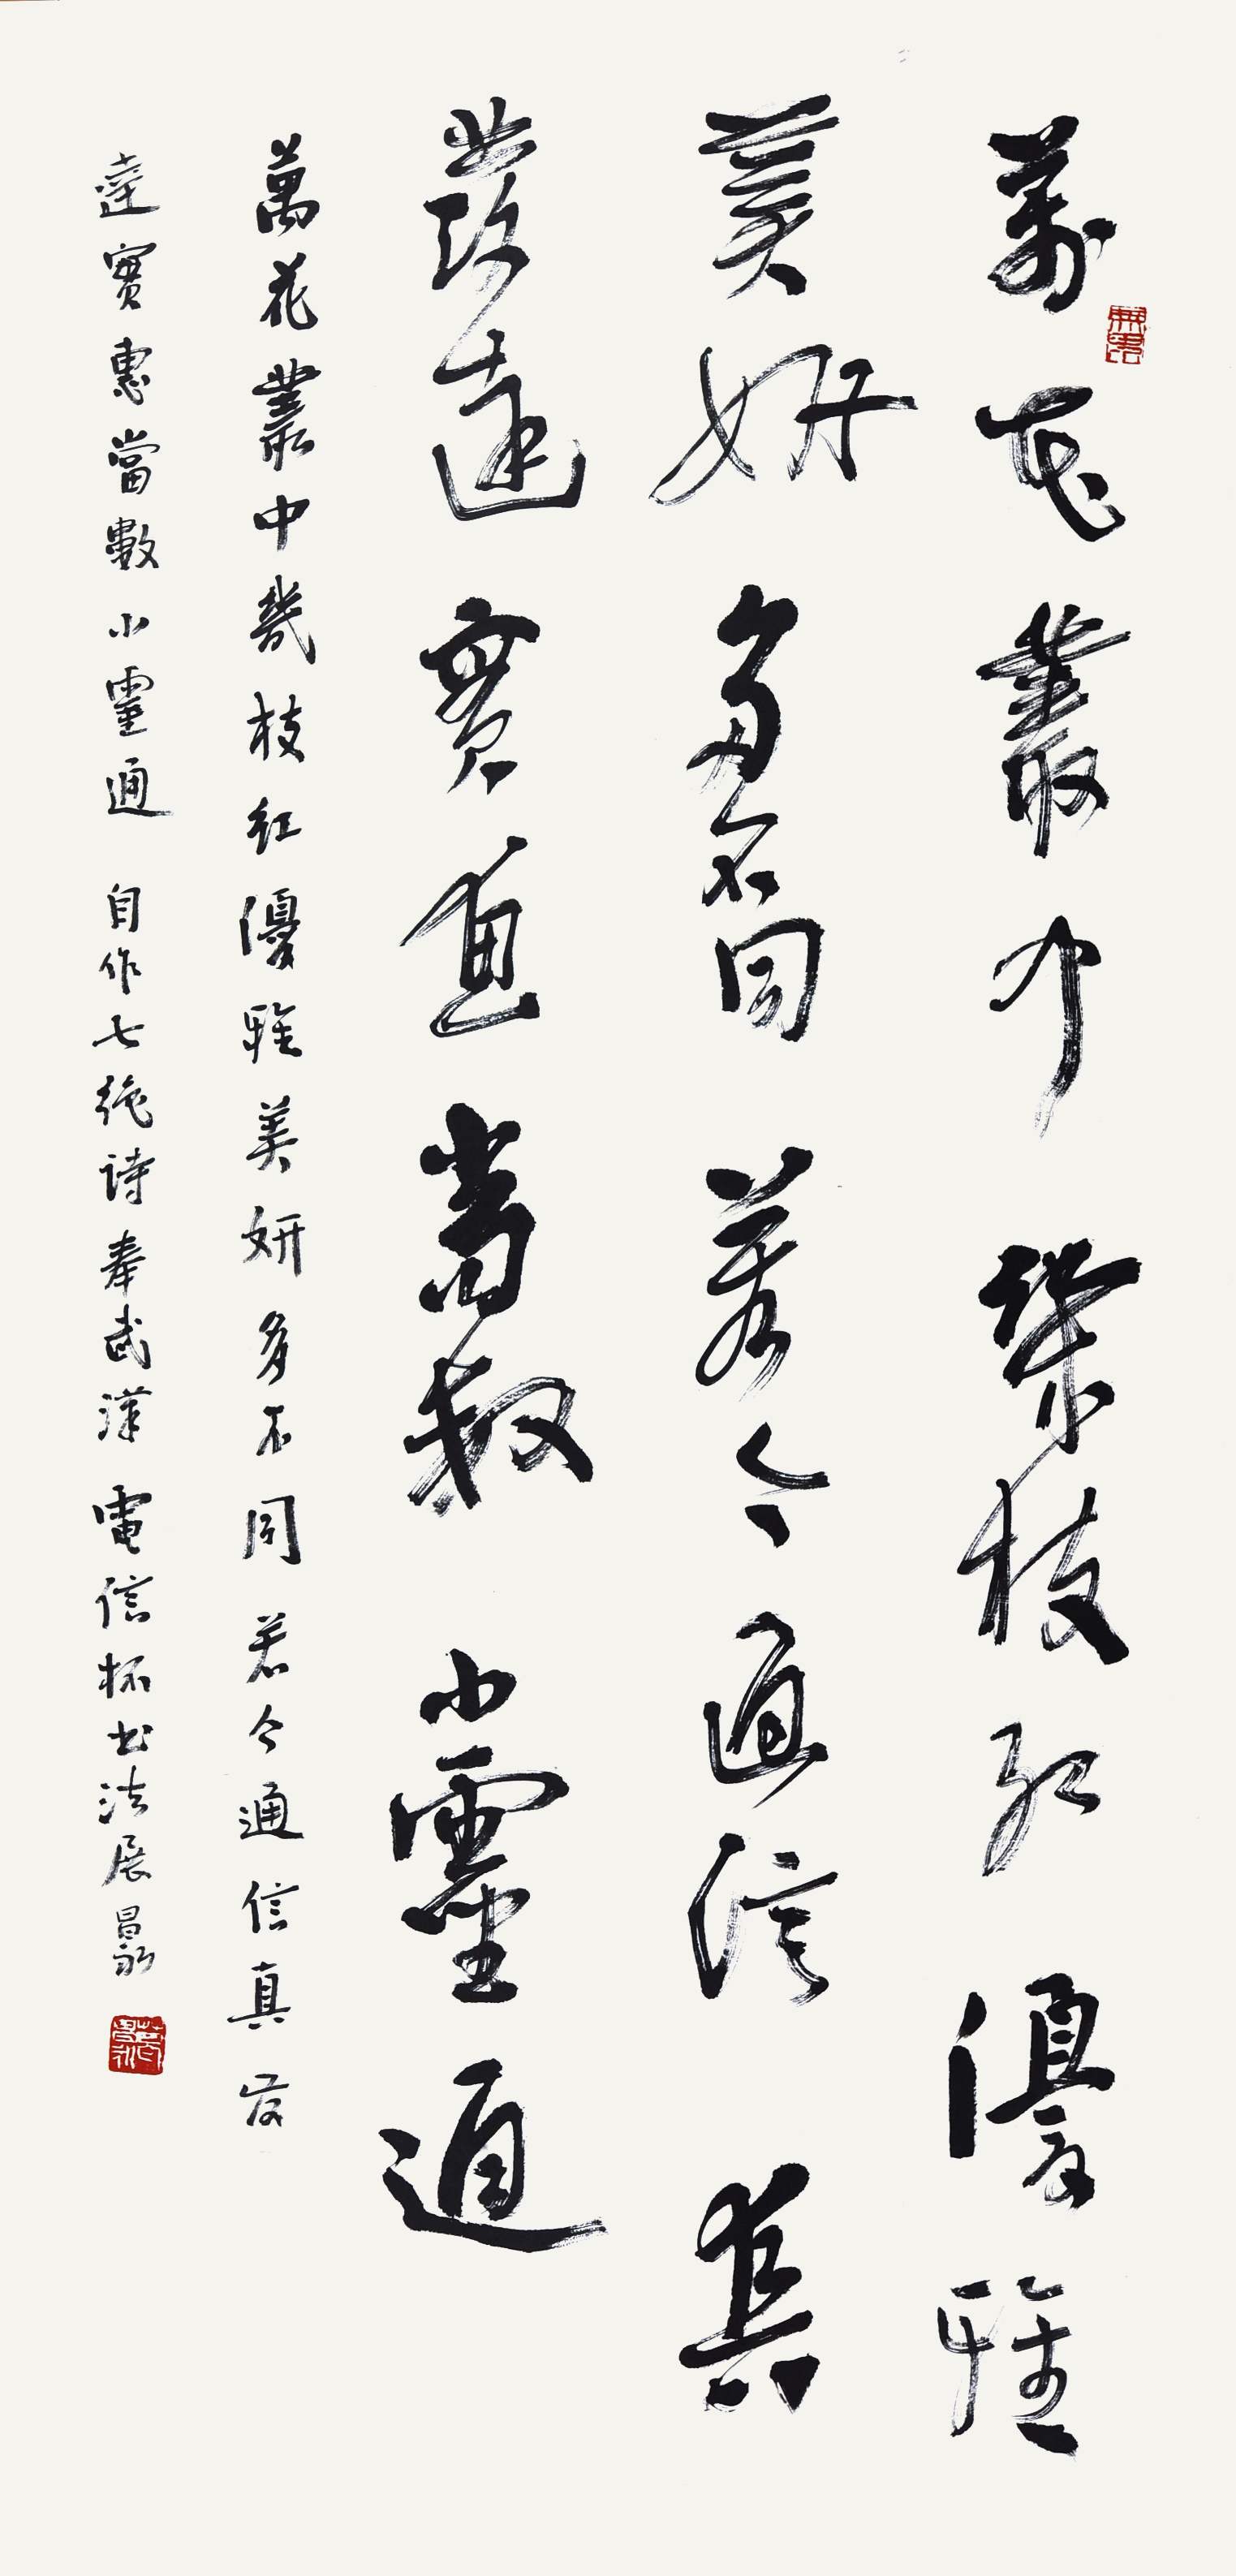 萬花叢中幾枝紅優雅
美妍多不同若今通信真
發達實惠當數小靈通
萬花叢中幾枝紅優雅美妍多不同若今通信真发
達實惠當數小靈通 自作七绝诗奉武漢電信杯书法展